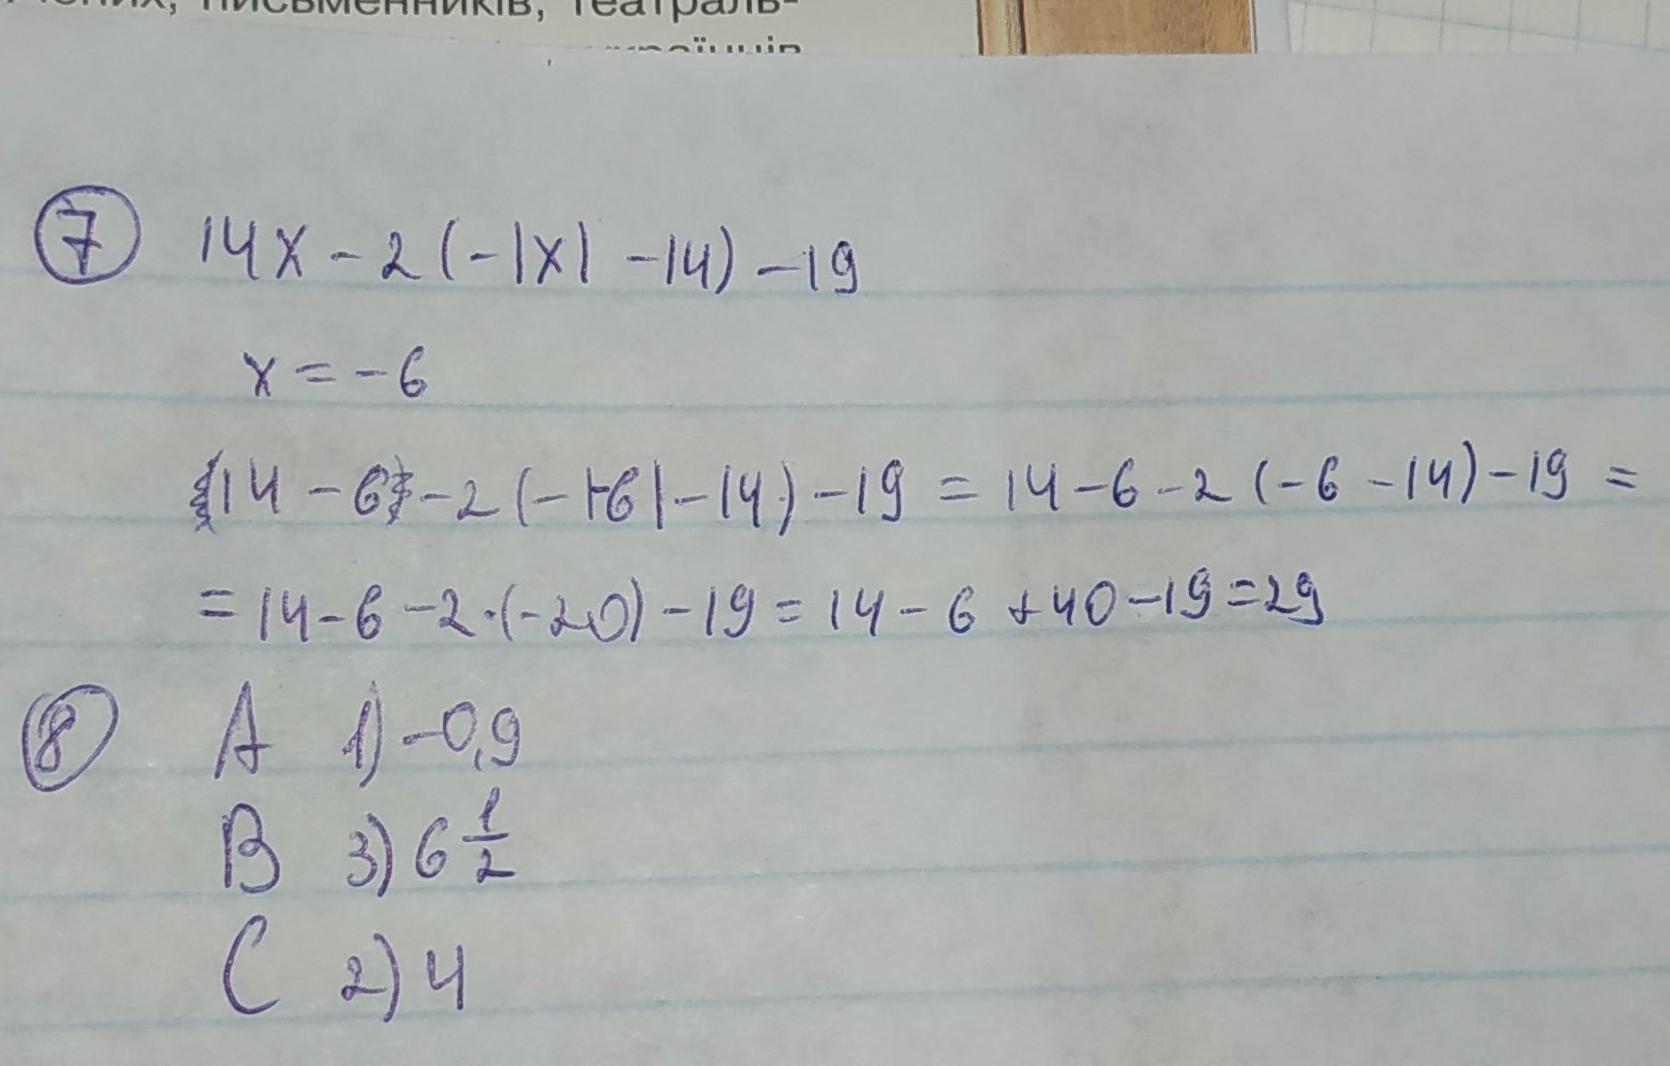 письменників, театраль-
⑦ 14x - 2 (-|x| - 14) - 19
x = -6
14 - 6 - 2 (-|-6| - 14) - 19 = 14 - 6 - 2 (-6 - 14) - 19 =
= 14 - 6 - 2 · (-20) - 19 = 14 - 6 + 40 - 19 = 29
⑧ A 1) -0,9
B 3) 6 1/2
C 2) 4